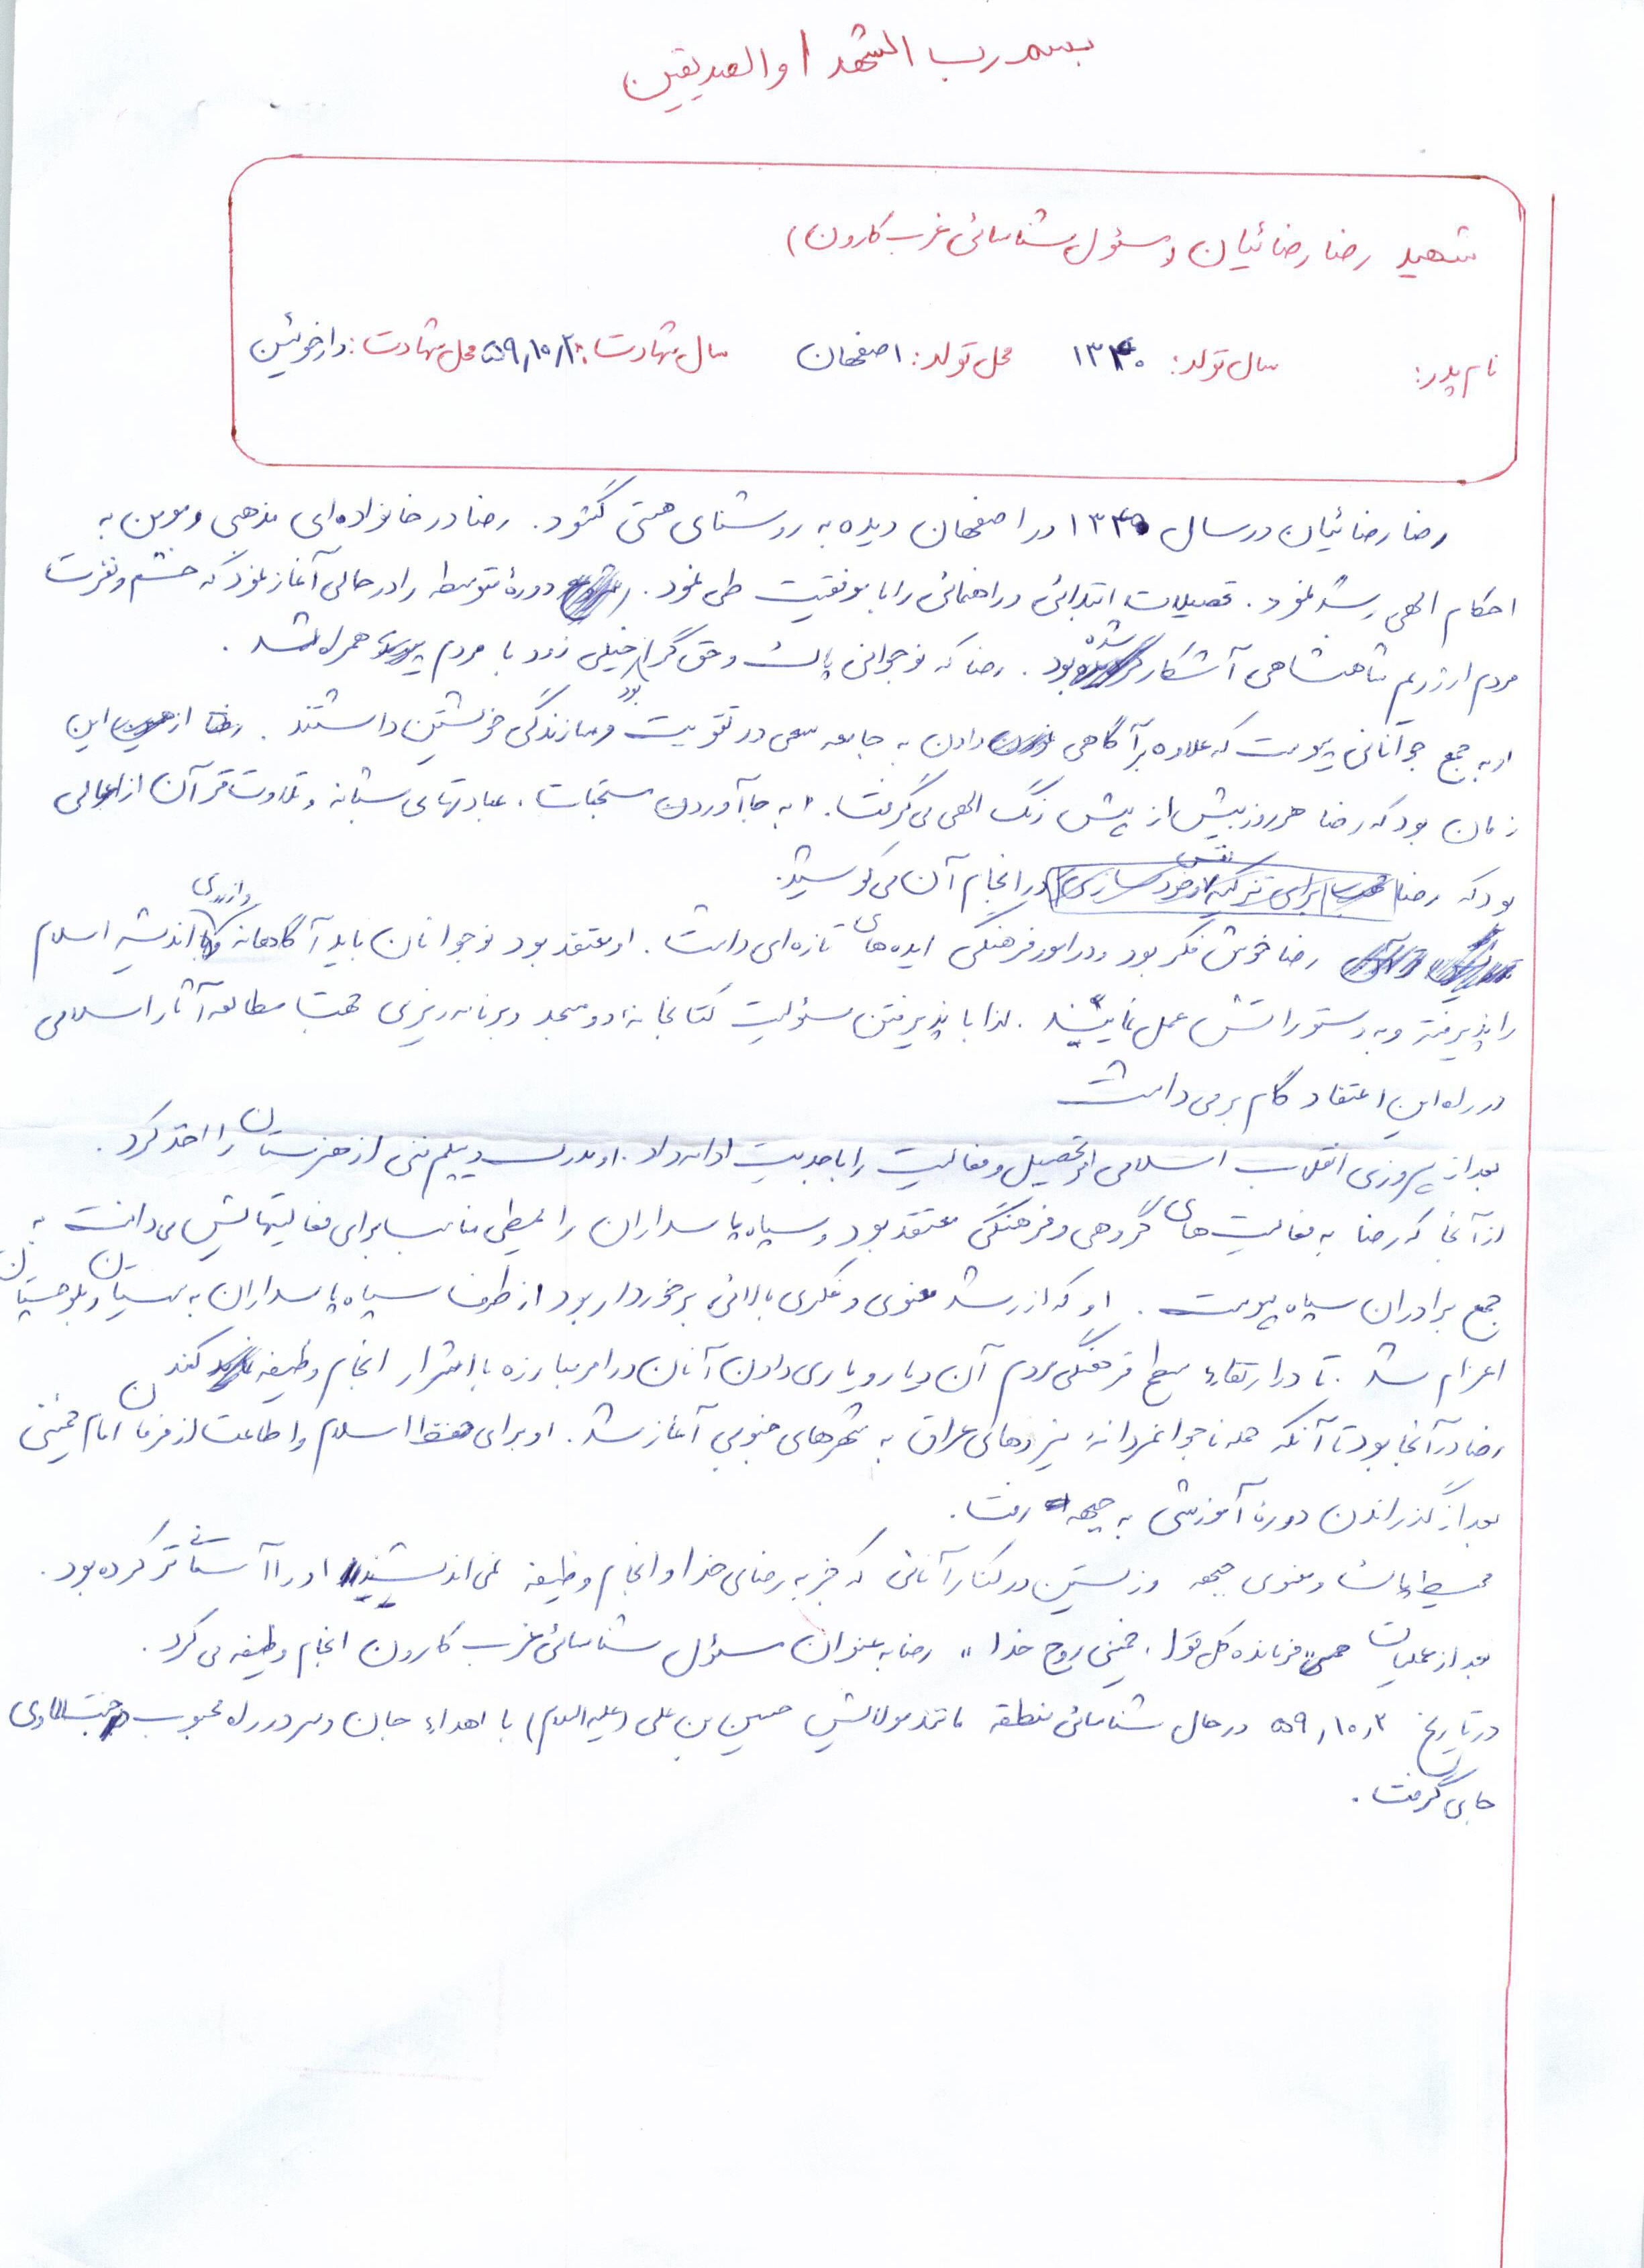 بسم رب الشهدا و الصدیقین
شهید رضا رضائیان (مسئول شناسائی غرب کارون)
نام پدر: سال تولد: ۱۳۴۰ محل تولد: اصفهان سال شهادت: ۵۹/۱۰/۳ محل شهادت: دارخوئین
رضا رضائیان در سال ۱۳۴۰ در اصفهان دیده به روشنای هستی گشود. رضا در خانواده‌ای مذهبی و مومن به
احکام الهی رشد نمود. تحصیلات ابتدائی و راهنمائی را با موفقیت طی نمود. دورهٔ متوسطه را در حالی آغاز نمود که خشم و نفرت
مردم از رژیم شاهنشاهی آشکار شده بود. رضا که نوجوانی پاک و حق گرا بود خیلی زود با مردم همراه شد.
او به جمع جوانانی پیوست که علاوه بر آگاهی دادن به جامعه سعی در تقویت و سازندگی خویشتن داشتند. از این
زمان بود که رضا هر روز بیش از پیش رنگ الهی می گرفت. به جا آوردن مستحبات، عبادتهای شبانه و تلاوت قرآن از اعمالی
بود که رضا برای تزکیه نفس و خودسازی در انجام آن می کوشید.
رضا خوش فکر بود و در امور فرهنگی ایده های تازه ای داشت. او معتقد بود نوجوانان باید آگاهانه اندیشه اسلام
را پذیرفته و به دستوراتش عمل نمایند. لذا با پذیرفتن مسئولیت کتابخانه دو مسجد و برنامه ریزی جهت مطالعه آثار اسلامی
در راه این اعتقاد گام برمی داشت
بعد از پیروزی انقلاب اسلامی تحصیل و فعالیت را با جدیت ادامه داد. او مدرک دیپلم فنی از هنرستان را اخذ کرد.
از آنجا که رضا به فعالیت های گروهی و فرهنگی معتقد بود و سپاه پاسداران را محیطی مناسب برای فعالیتهایش می دانست به
جمع برادران سپاه پیوست. او که از رشد معنوی و فکری بالائی برخوردار بود از طرف سپاه پاسداران به سیستان و بلوچستان
اعزام شد. تا در ارتقاء سطح فرهنگی مردم آن دیار و یاری دادن آنان در امر مبارزه با اشرار انجام وظیفه کند
رضا در آنجا بود تا آنکه حمله ناجوانمردانهٔ نیروهای عراق به شهرهای جنوبی آغاز شد. او برای حفظ اسلام و اطاعت از فرمان امام خمینی
بعد از گذراندن دورهٔ آموزشی به جبهه رفت.
محیط پاک و معنوی جبهه و زیستن در کنار آنانی که جز به رضای خدا و انجام وظیفه نمی اندیشیدند او را آسمانی تر کرده بود.
بعد از عملیات «فرمانده کل قوا، خمینی روح خدا» رضا به عنوان مسئول شناسائی غرب کارون انجام وظیفه می کرد.
در تاریخ ۵۹/۱۰/۳ در حال شناسائی منطقه مانند مولایش حسین بن علی (علیه السلام) با اهداء جان و سر در راه محبوب در جنت الماوی
جای گرفت.